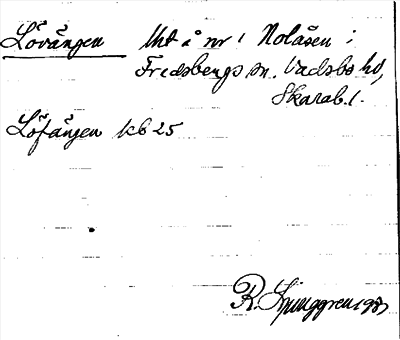 Lövängen Uht å nr 1 Nolåsen i
Fredsbergs sn. Vadsbo hd,
Skarab. l.
Löfången kb 25
R. Ljunggren 1987